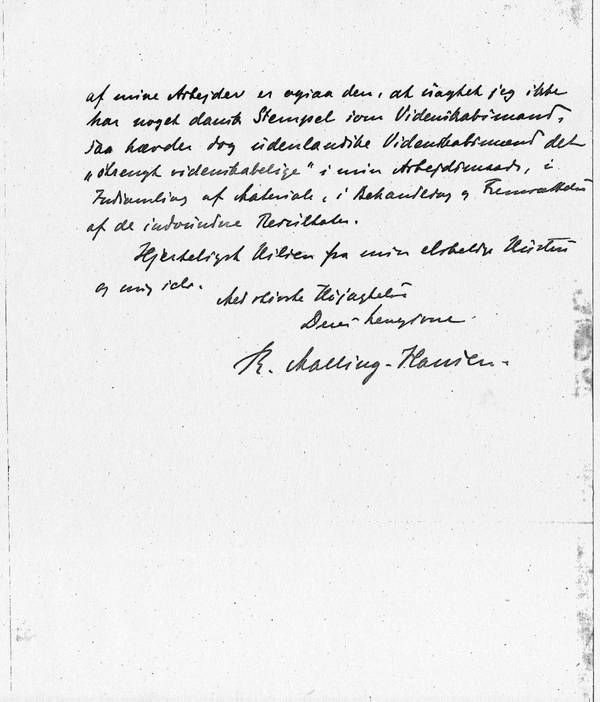 af mine Arbejder er ogsaa den, at uagtet jeg ikke
har noget dansk Stempel som Videnskabsmand,
saa hævder dog udenlandske Videnskabsmænd det
„strengt videnskabelige“ i min Arbejdsmaade, i
Indsamling af Materiale, i Behandling og Fremsættelse
af de indvundne Resultater.
Hjerteligst Hilsen fra min elskelige Hustru
og mig selv.
Med største Høiagtelse
Deres hengivne
R. Malling-Hansen.